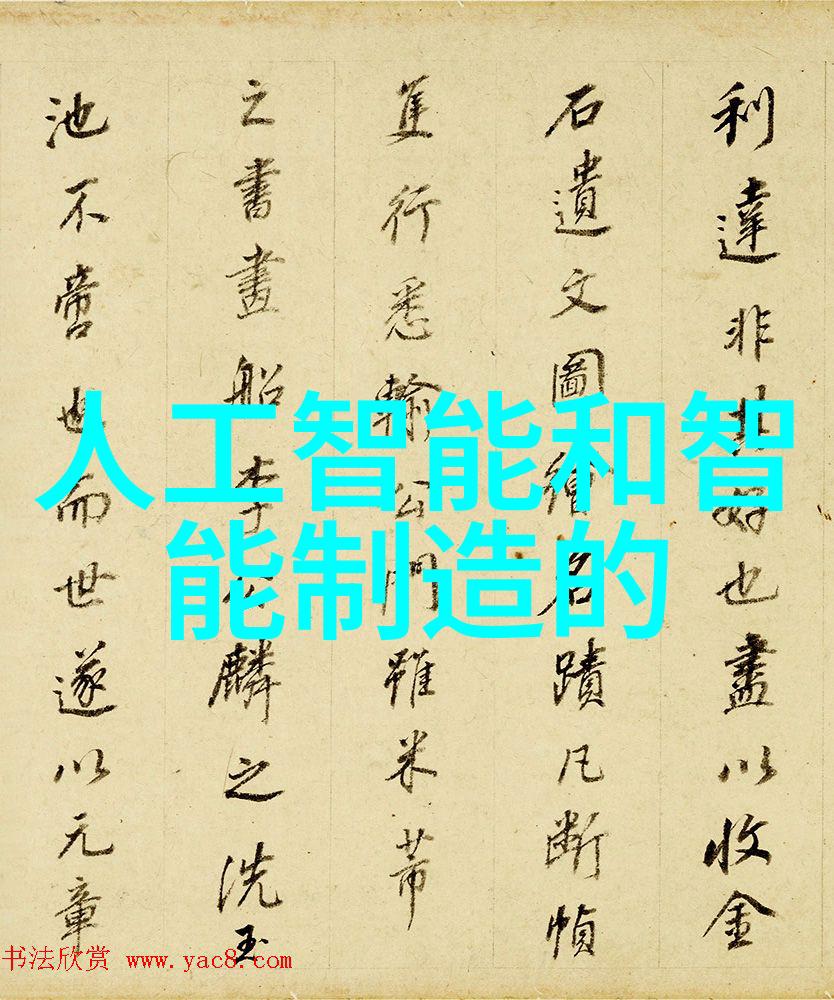 利達非其好也盡以收金
石遺文圖繪名蹟凡斷幀
隻行悉輸公門雖米芾
之書畫船李公麟之洗玉
池不啻也而世遂以元章
人工智能和智
能制造的
书法欣赏 www.yac8.com